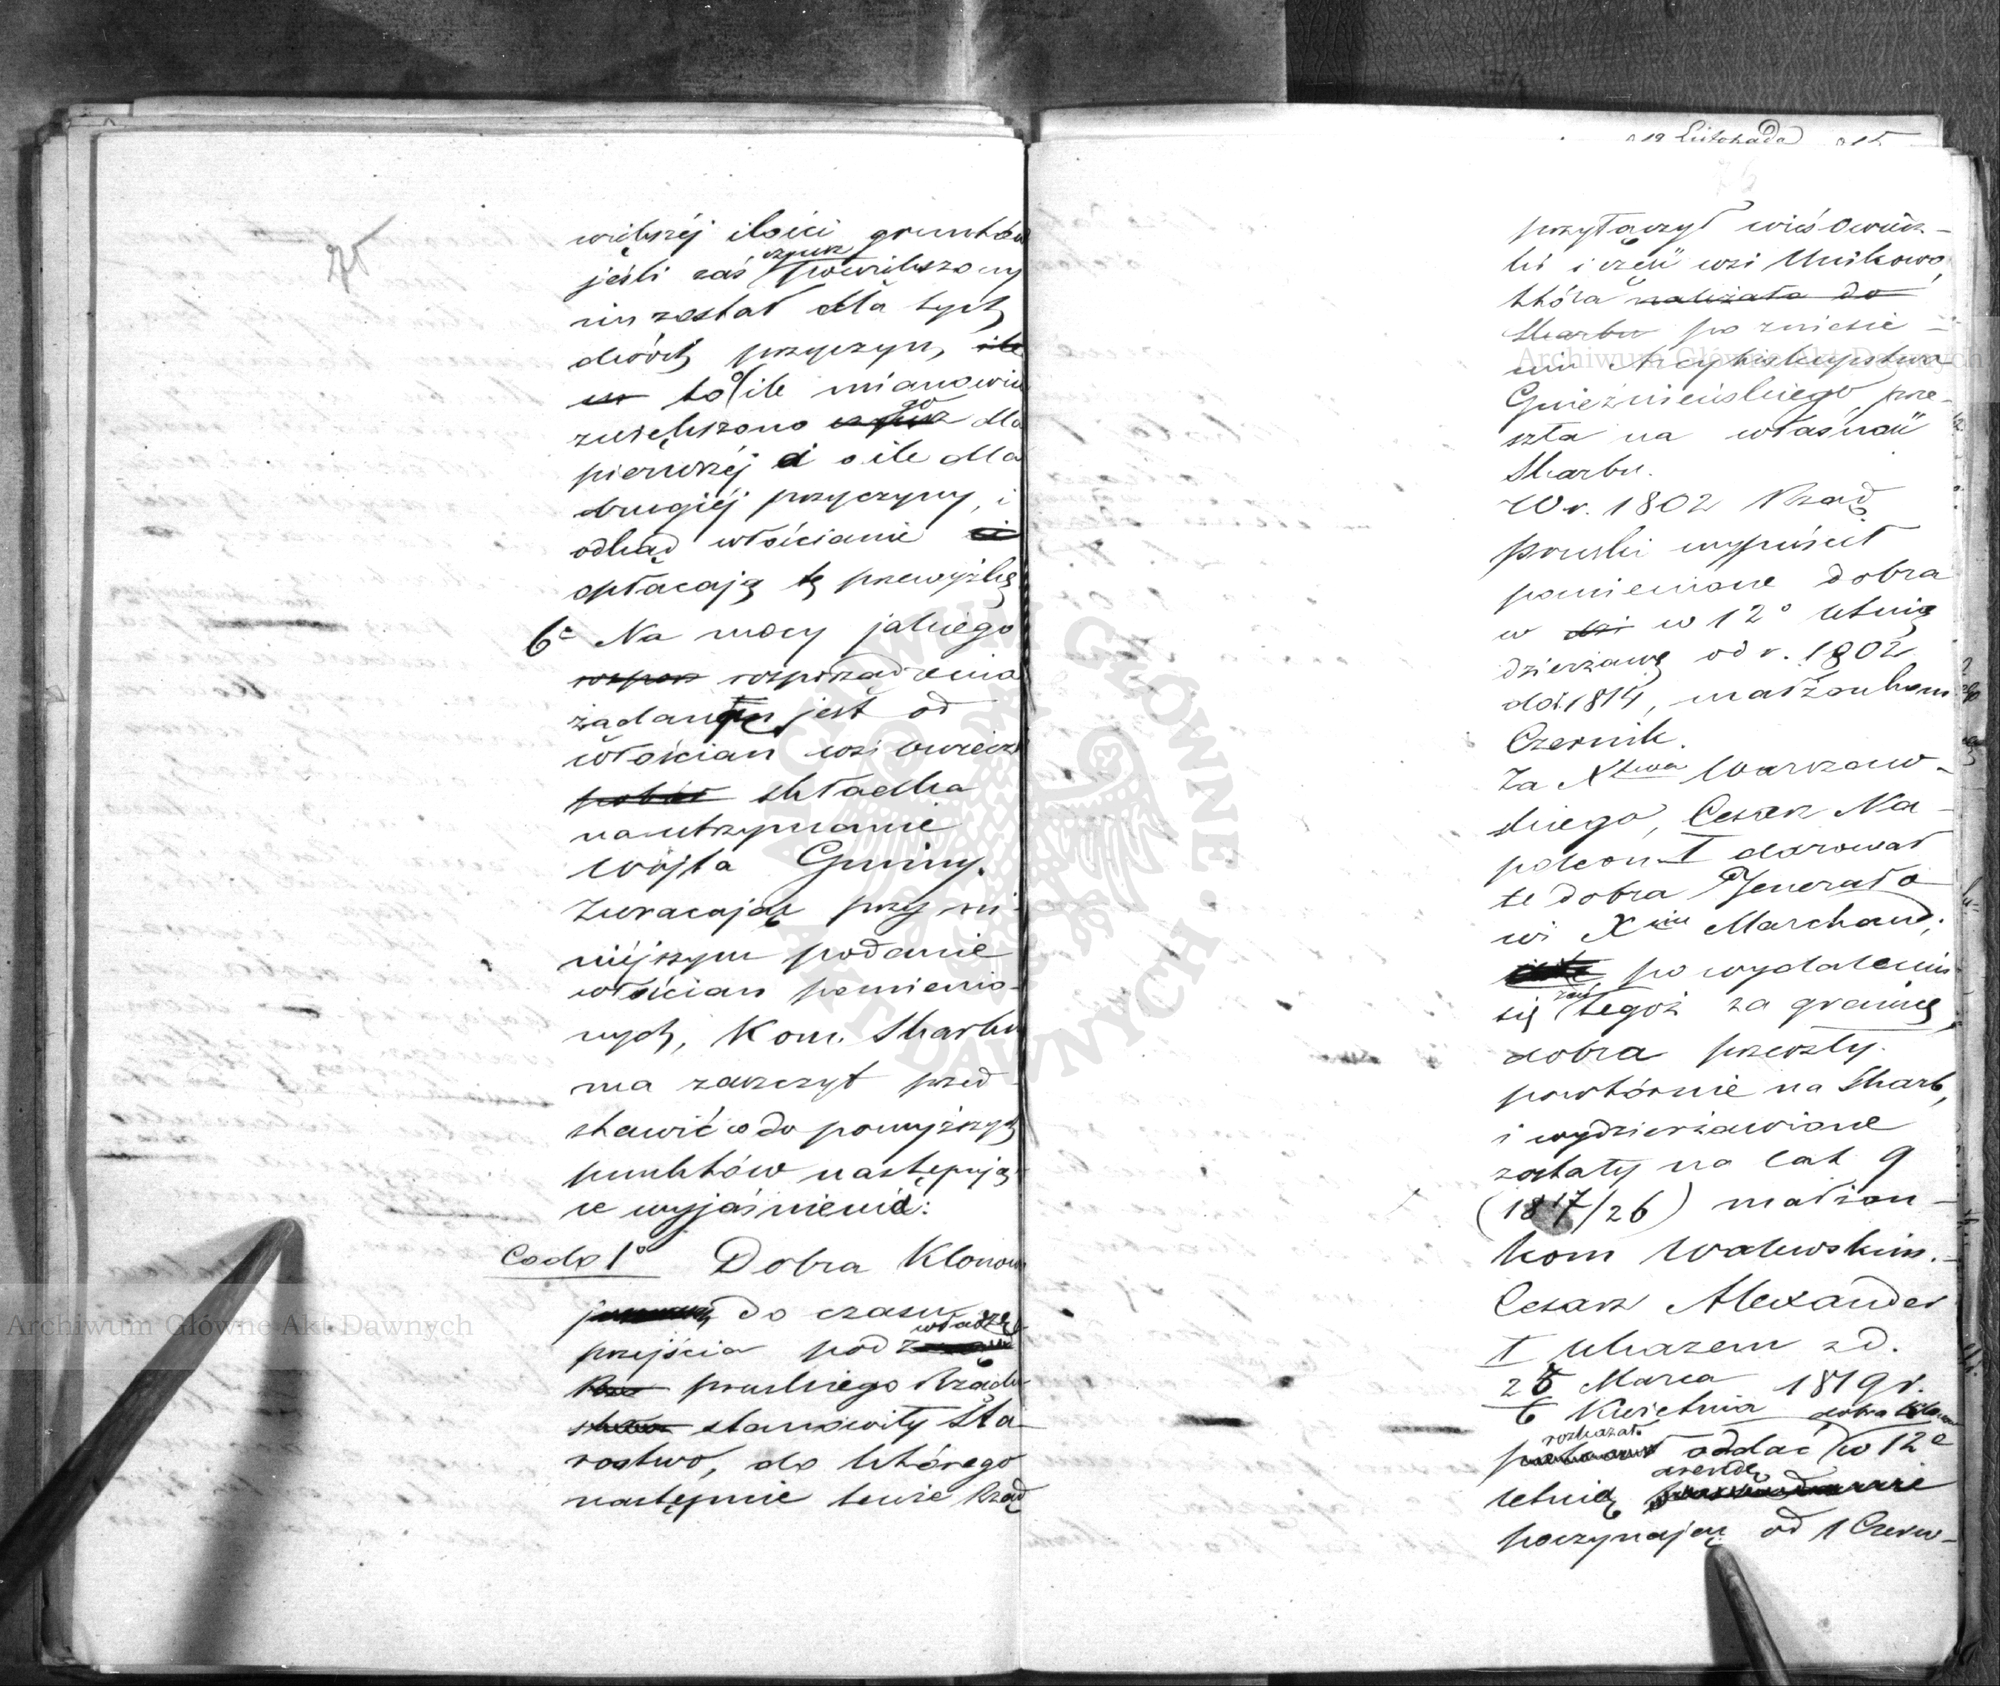 większéj ilości gruntów
jeśli zaś czynsz powiększony
im został dla tych
dwóch przyczyn, ile
to o ile mianowicie
zwiększono go dla
pierwszéj a o ile dla
drugiéj przyczyny, i
odkąd włościanie
opłacają tę przewyżkę
6° Na mocy jakiego
rozporządzenia
żądaną jest od
włościan wsi Owiecz
składka
na utrzymanie
Wójta Gminy.
Zwracając przy ni-
niéjszym podanie
włościan pomienio-
nych, Kom. Skarbu
ma zaszczyt przed-
stawić co do powyższych
punktów następują-
ce wyjaśnienia:
Co do 1° Dobra Klonowa
do czasu
przejścia pod władzę
pruskiego Rządu
stanowiły Sta-
rostwo, do którego
następnie tenże Rząd
19 Listopada
przyłączył wieś Owiecz-
ki i część wsi Unikowa,
która należała do
Skarbu po zniesie-
niu Arcybiskupstwa
Gnieźnieńskiego prze-
szła na własność
Skarbu.
W r. 1802 Rząd
pruski wypuścił
pomienione dobra
w w 12° letnią
dzierżawę od r. 1802
do r. 1814, małżonkom
Czernik.
Za Xtwa Warszaw-
skiego, Cesarz Na-
poleon I darował
te dobra Jenerało-
wi Marchand;
po wydaleniu
się zaś tegoż za granicę,
dobra przeszły
powtórnie na Skarb,
i wydzierżawione
zostały na lat 9
(1817/26) małżon-
kom Walewskim.
Cesarz Alexander
I Ukazem z d.
25 Marca 1819 r.
6 Kwietnia dobra
rozkazał oddać w 12°
letnią arendę
poczynając od 1 Czerw-
Archiwum Główne Akt Dawnych
Archiwum Główne Akt Dawnych
ARCHIWUM GŁÓWNE · AKT DAWNYCH ·